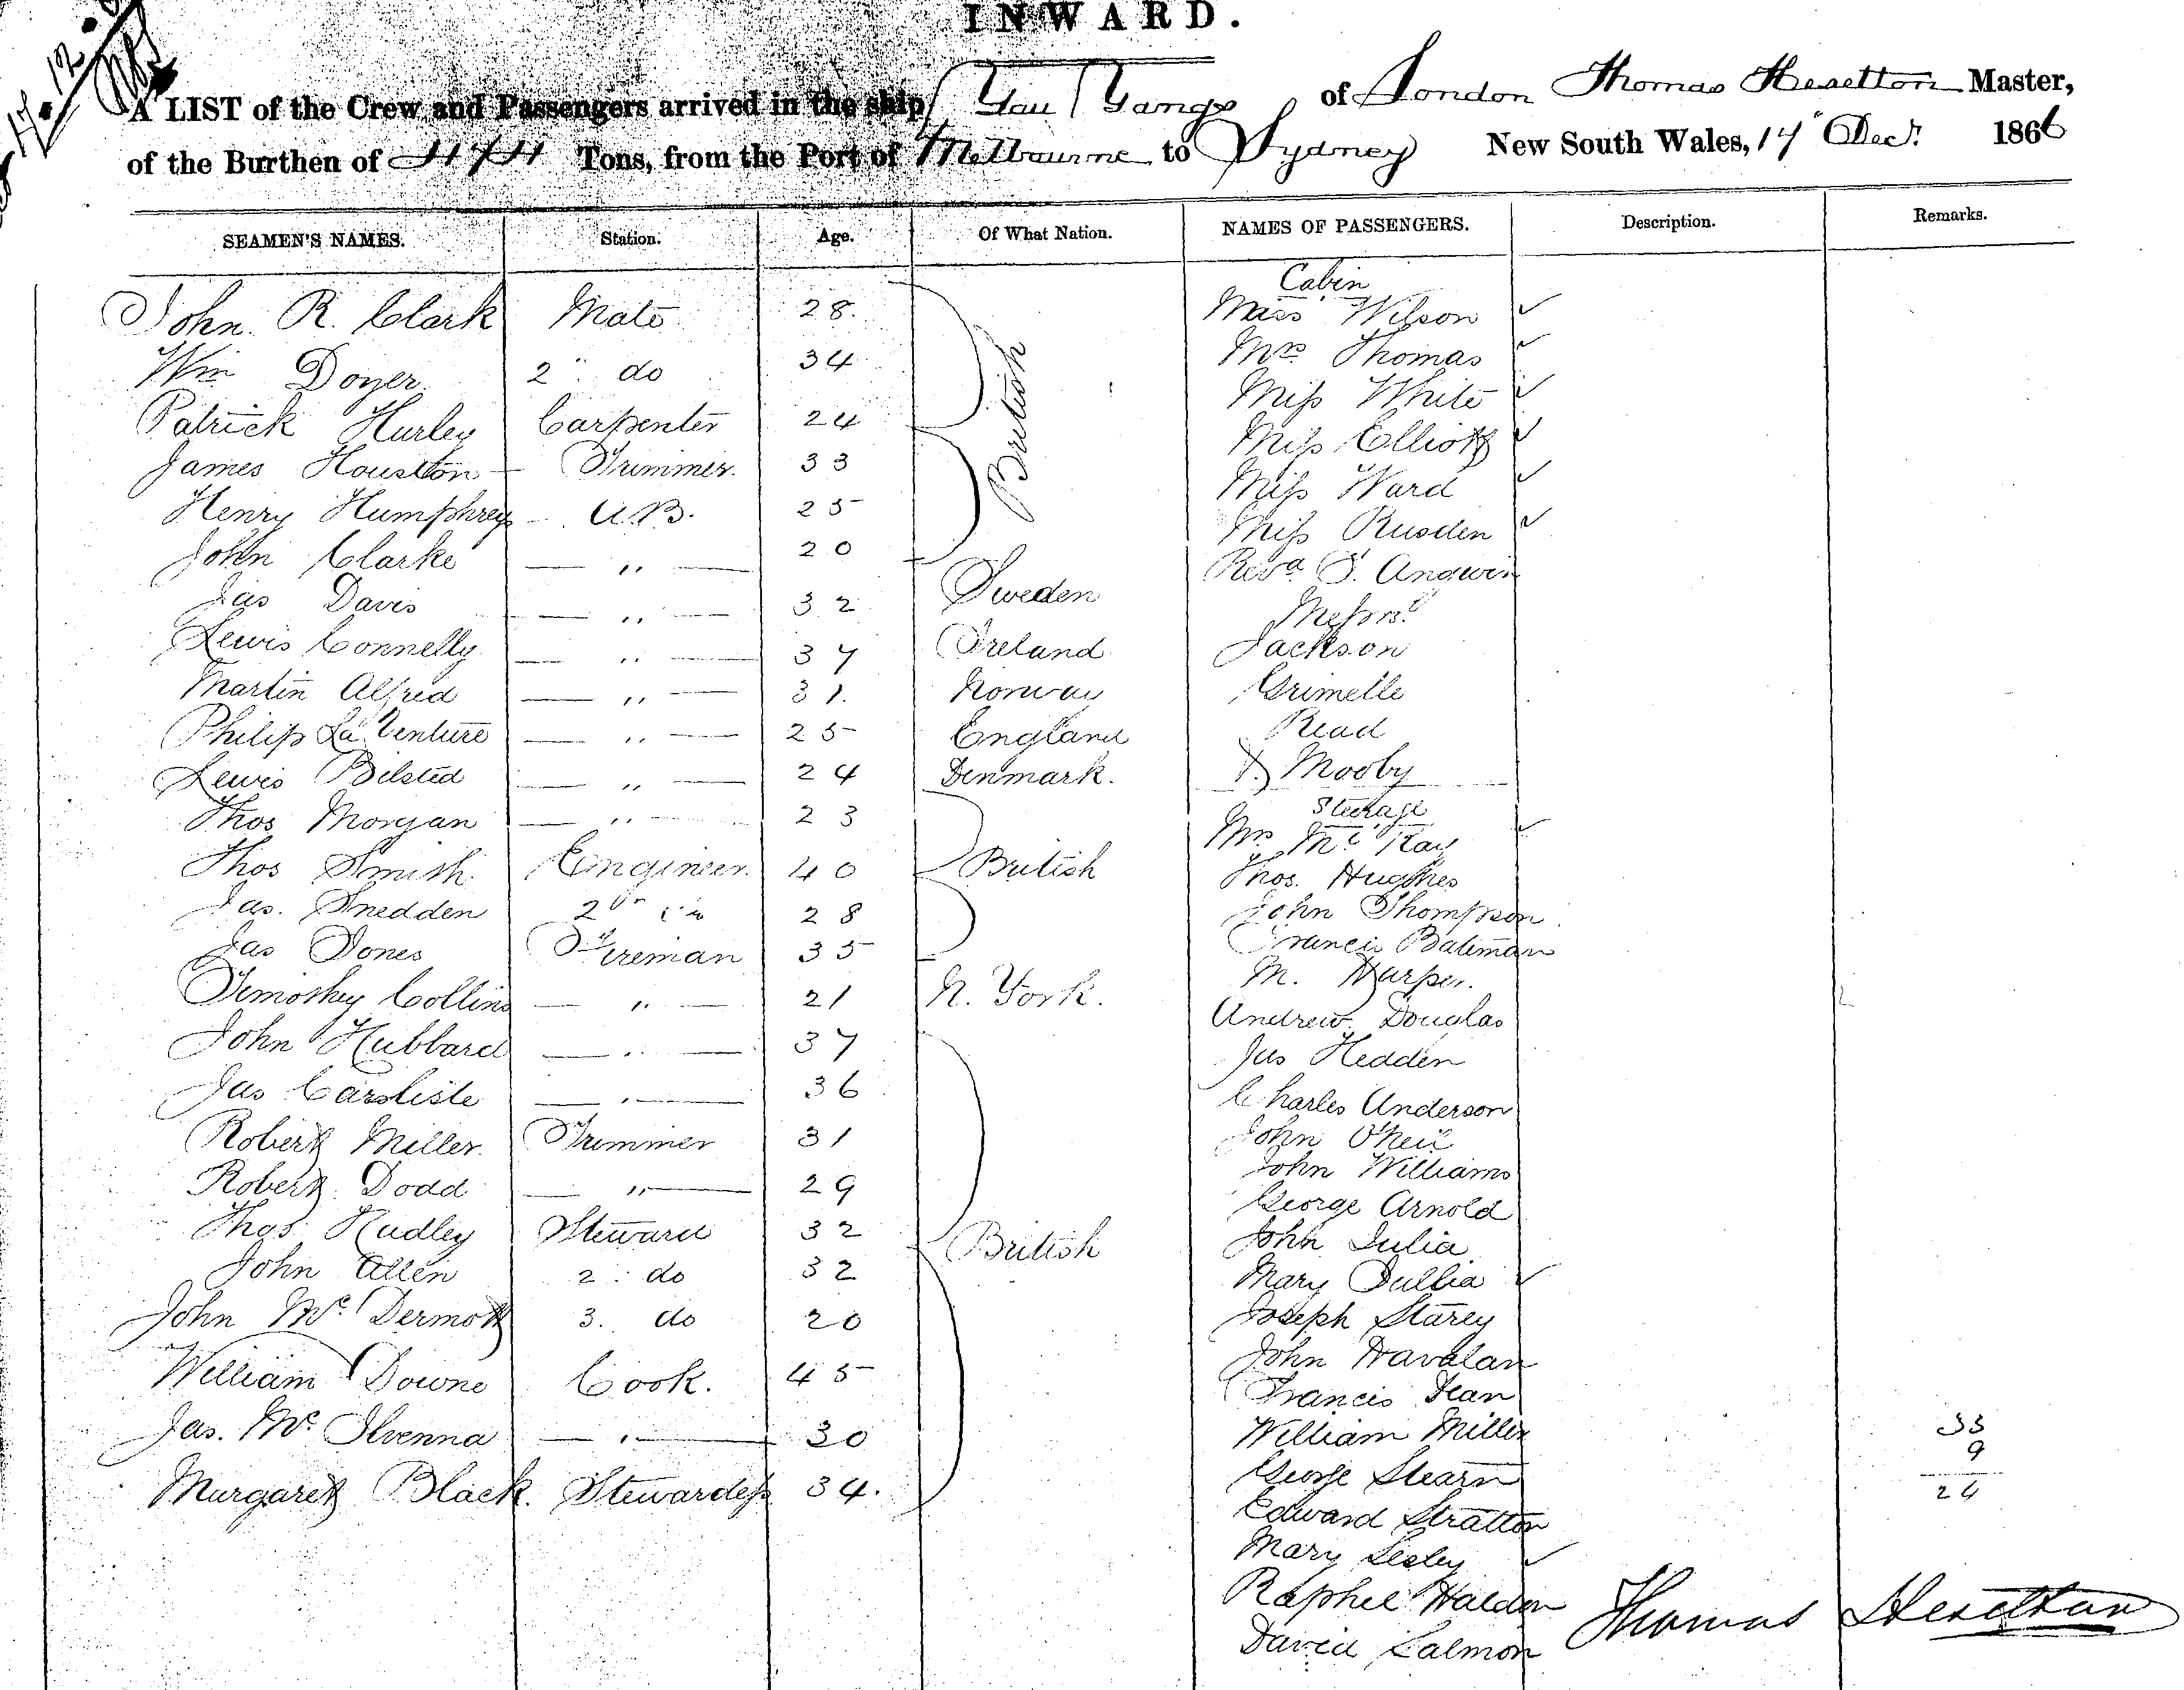 INWARD.
A LIST of the Crew and Passengers arrived in the ship You Yangs of London Thomas Heselton Master,
of the Burthen of 474 Tons, from the Port of Melbourne to Sydney New South Wales, 17 Decr. 1866
SEAMEN'S NAMES. Station. Age. Of What Nation. NAMES OF PASSENGERS. Description. Remarks.
Cabin
John. R. Clark Mate 28. British Miss Wilson
Wm Doyer. 2" do 34 Mrs Thomas
Patrick Hurley Carpenter 24 Miss White
James Houston Trimmer. 33 Miss Elliott
Henry Humphreys A.B. 25 Miss Ward
John Clarke — " — 20 Miss Rusden
Jas Davis — " — 32 Sweden Revd S. Angwin
Messrs.
Lewis Connelly — " — 37 Ireland Jackson
Martin Alfred — " — 31. Norway Grimelle
Philip La Venture — " — 25 England Read
Lewis Bilsted — " — 24 Denmark. & Mooby
Steerage
Thos Morgan — " — 23 Mrs McKay
Thos Smith Engineer. 40 British Thos. Hughes
Jas. Snedden 2 28 John Thompson
Jas Jones Fireman 35 Francis Bateman
Timothy Collins — " — 21 N. York. M. Harper.
Andrew Douglas
John Hubbard — " — 37 Jas Hedden
Jas Carslisle — " — 36 Charles Anderson
Robert Miller. Trimmer 31 John O'Neil
John Williams
Robert Dodd — " — 29 George Arnold
Thos. Hudley Steward 32 British John Julia
John Allen 2" do 32 Mary Jullia
John McDermott 3. do 20 Joseph Starey
William Downe Cook. 45 John Havalan
Francis Jean
Jas. McIlvenna — " — 30 William Miller 33
George Stearn 9
Margaret Black. Stewardess 34. Edward Stratton 24
Mary Lesley
Raphel Halden
David Salmon
Thomas Heselton